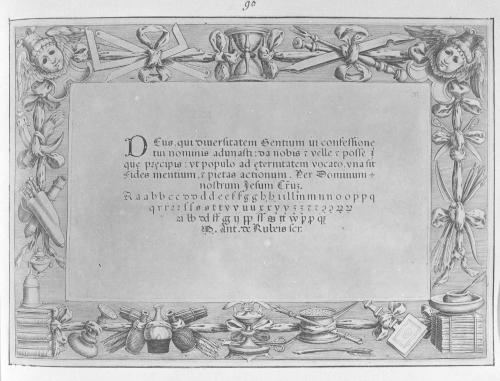 90
DEus, qui diversitatem Gentium in confessione
tui nominis adunasti: da nobis et velle et posse
que precipis: vt populo ad eternitatem vocato, vna sit
Fides mentium, et pietas actionum. Per Dominum
nostrum Jesum Crm̃.
A a a b b c c d d d e e f f g g h h i i l l m m n n o o p p q
q r r r s s s s t t v v u u x x y y z z
M. Ant. de Rubeis scr.